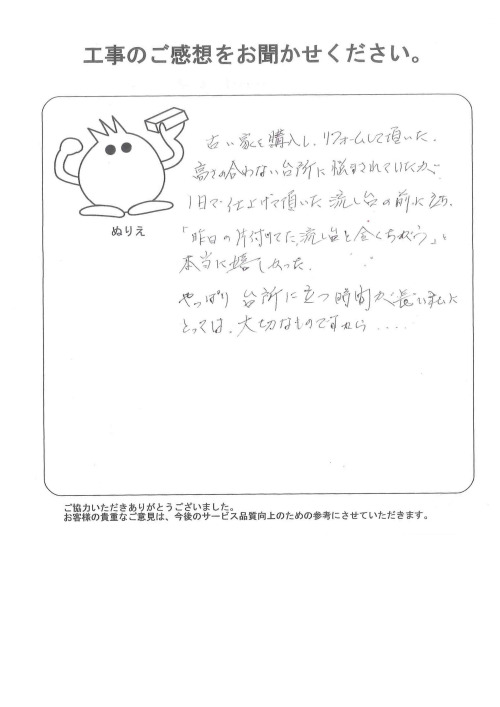 工事のご感想をお聞かせください。
ぬりえ
古い家を購入し、リフォームして頂いた。
高さの合わない台所に悩まされていたが
1日で仕上げて頂いた流し台の前に立ち、
「昨日の片付けてた流し台と全くちがう」と
本当に嬉しかった。
やっぱり 台所に立つ時間が長い私に
とっては、大切なものですから....
ご協力いただきありがとうございました。
お客様の貴重なご意見は、今後のサービス品質向上のための参考にさせていただきます。